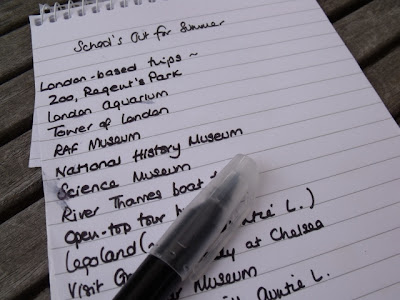 School's Out for Summer
London-based trips ~
Zoo, Regent's Park
London Aquarium
Tower of London
RAF Museum
National History Museum
Science Museum
River Thames boat
Open-top tour
Legoland ( Auntie L.)
Visit at Chelsea
Museum
Auntie L.